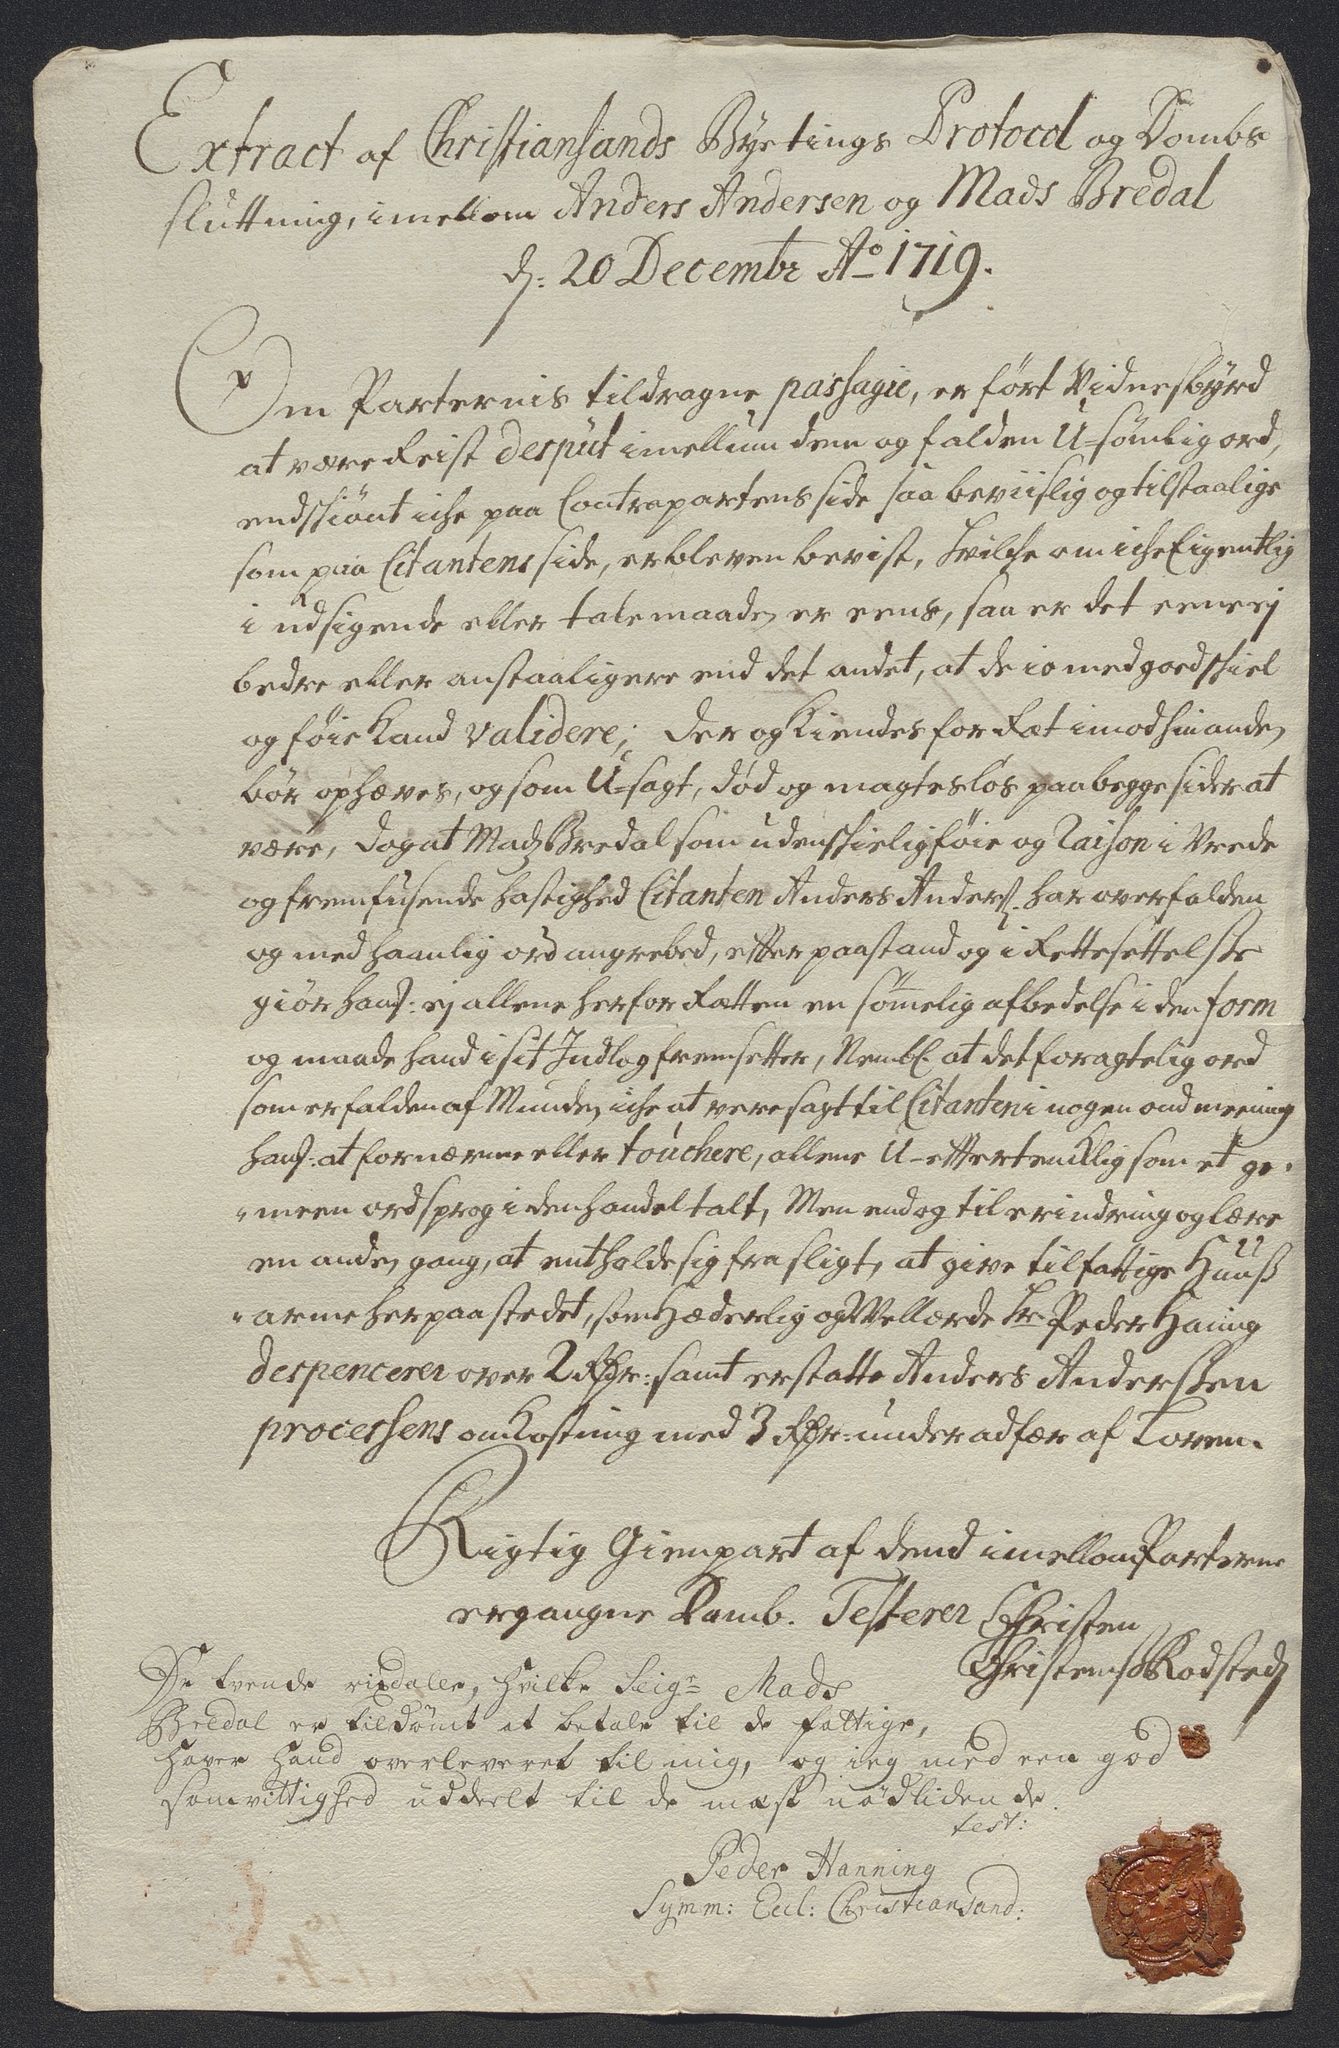 Extract af Christiansands Byetings Protocol og Dombs
sluttning, imellem Anders Andersen og Mads Bredal
d: 20 Decembr Ao 1719.
Om Parternis tildragne passagie, er ført Vidnesbyrd
at være Reist desput imellum dem og falden U-sømlig ord,
endskiønt iche paa Contrapartens side saa beviislig og tilstaalige
som paa Citantens side, er bleven bevist, hvilche om iche Eigentlig
i udsigende eller talemaaden er eens, saa er det eene ej
bedre eller anstaaligere end det andet, at de io med goed skiel
og føie kand validere; Der og kiendes for Ræt imod hinanden
bør ophæves, og som U-sagt, død og magtesløs paa begge sider at
være, dog at Mads Bredal som uden skielig føie og Raison i Vrede
og fremfusende hastighed Citanten Anders Anders: har overfalden
og med haanlig ord angrebed, efter paastand og i Rettesettelse
giør hans: ej allene her for Rætten en sømelig afbedelse i den form
og maade hand i sit Indlog fremsetter, Nembl. at det foragtelig ord
som er falden af Munden iche at vere sagt til Citanten i nogen ond meening
hans: at fornærme eller touchere, allene U-efftertencklig som et ge-
meen ordsprog i den handel talt, Men endog til erindring og lære
en anden gang, at entholde sig fra sligt, at give til fattige Huuß
arme her paa stedet, som Hæderlig og Wellærde Hr. Peder Haning
despencerer over 2 Rdr: samt erstatte Anders Andersen
processens omkostning med 3 Rdr: under adfær af Loven.
Rigtig Gienpart af dend imellom Parterne
ergangne Domb. Testerer Christen
Christens. Rodsted
De tvende rixdaler, hvilke Seigr Mads
Bredal er tildømt at betale til de fattige,
haver hand overleveret til mig, og ieg med een god
samvittighed uddeelt til de mæst nødlidende.
test:
Peder Hanning
Symm: Eccl: Christiansand: